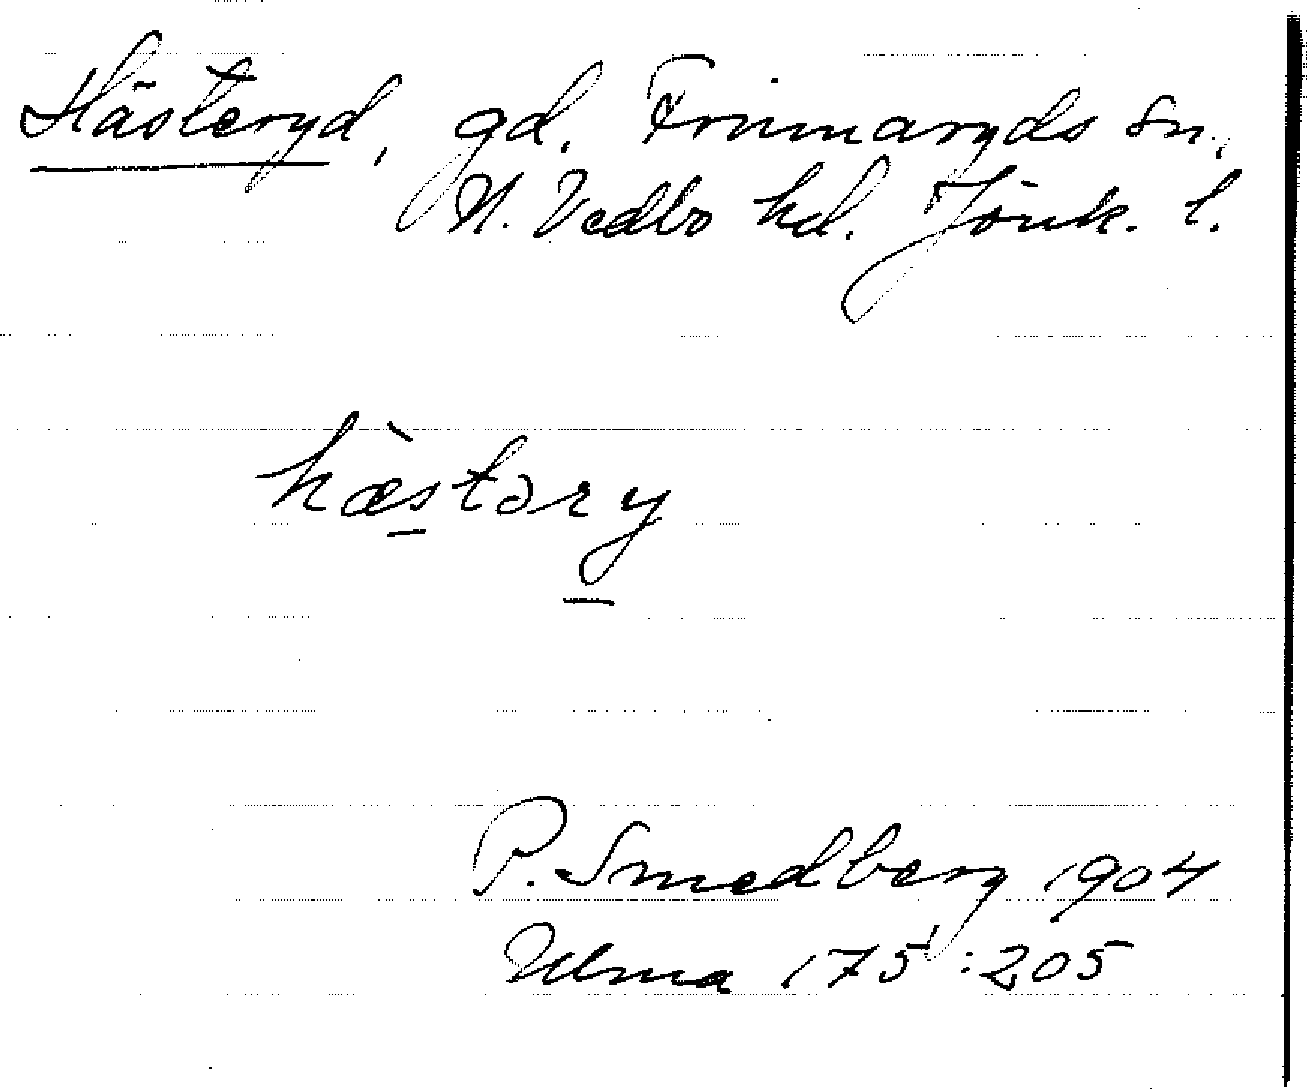 Hästeryd, gd. Frinnaryds sn.,
N. Vedbo hd. Jönk. l.
hæ̀stəry
P. Smedberg 1904
Ulma 175:205